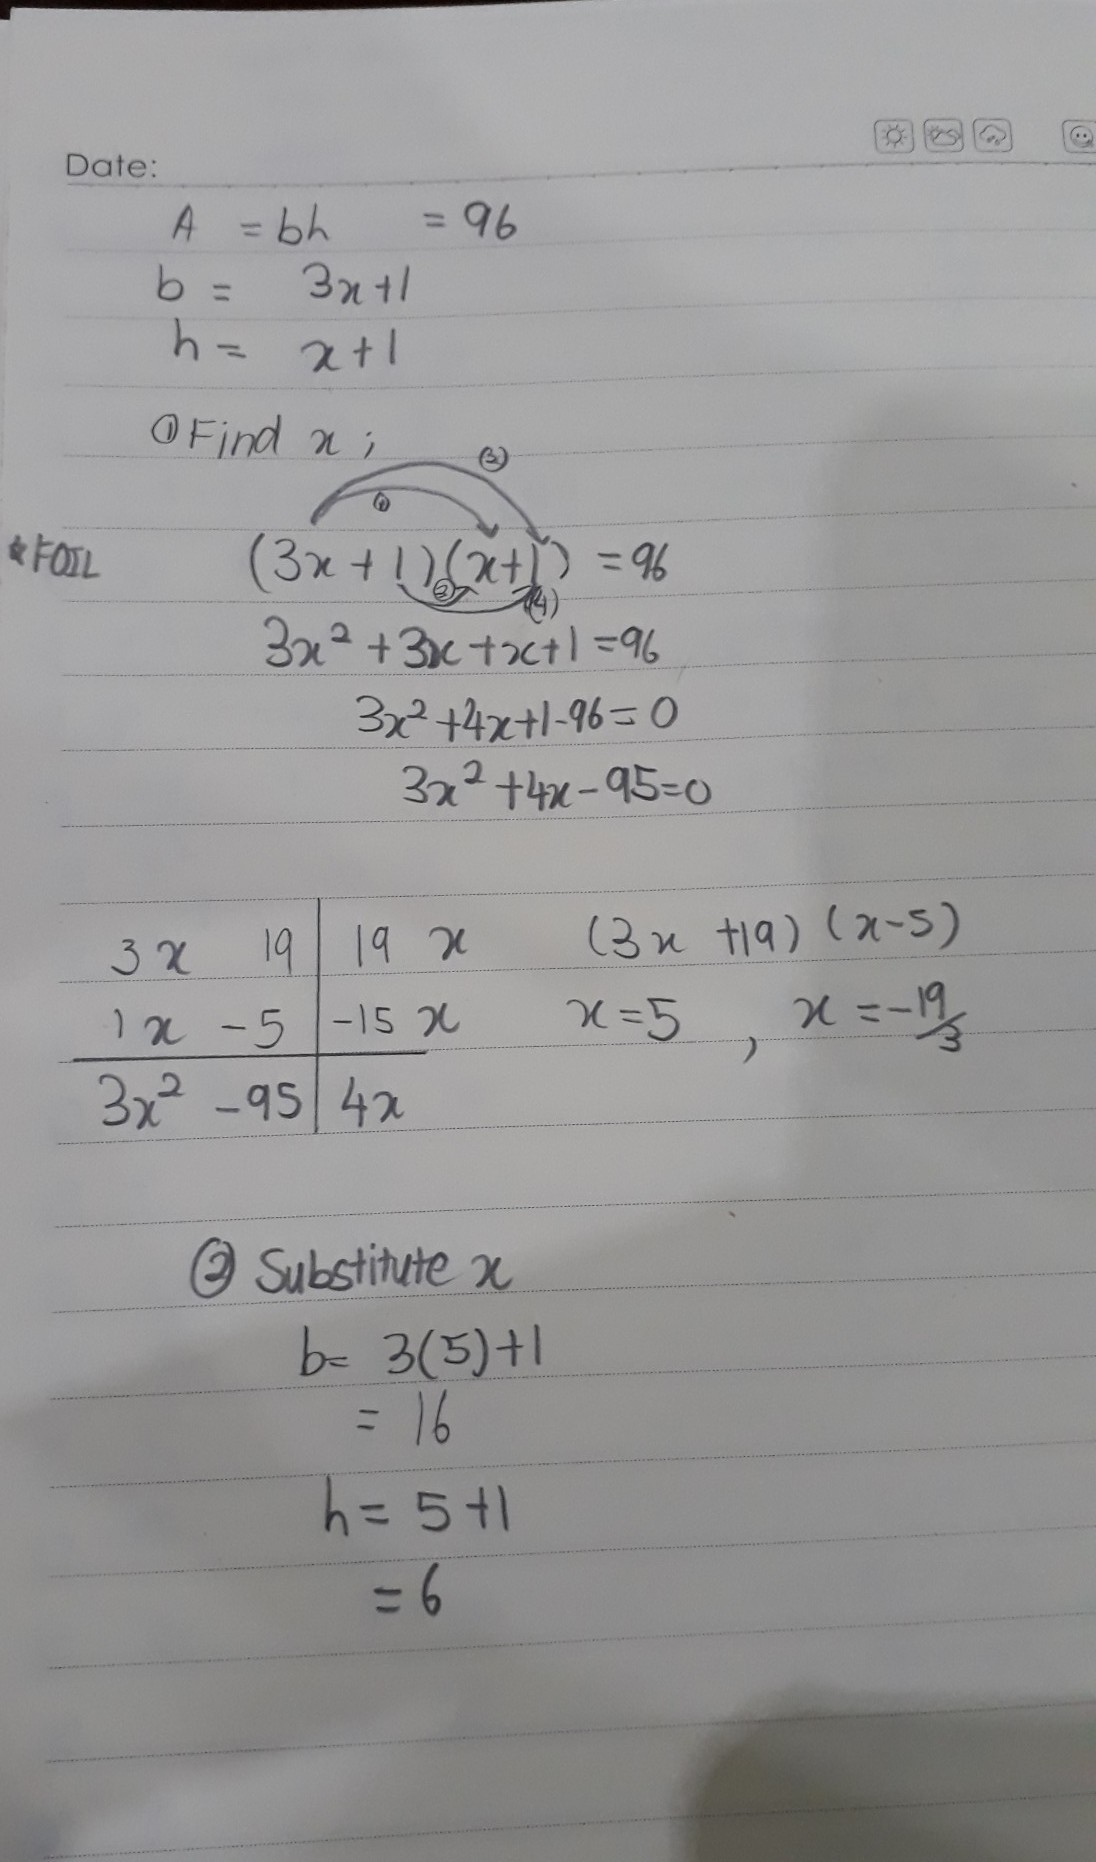 Date:
A = bh = 96
b = 3x+1
h = x+1
① Find x;
③
①
*FOIL (3x+1)(x+1) = 96
② (4)
3x² + 3x + x + 1 = 96
3x² + 4x + 1 - 96 = 0
3x² + 4x - 95 = 0
3x 19 | 19 x (3x + 19) (x - 5)
1x - 5 | -15 x x = 5 , x = -19/3
3x² - 95 | 4x
② Substitute x
b = 3(5) + 1
= 16
h = 5 + 1
= 6